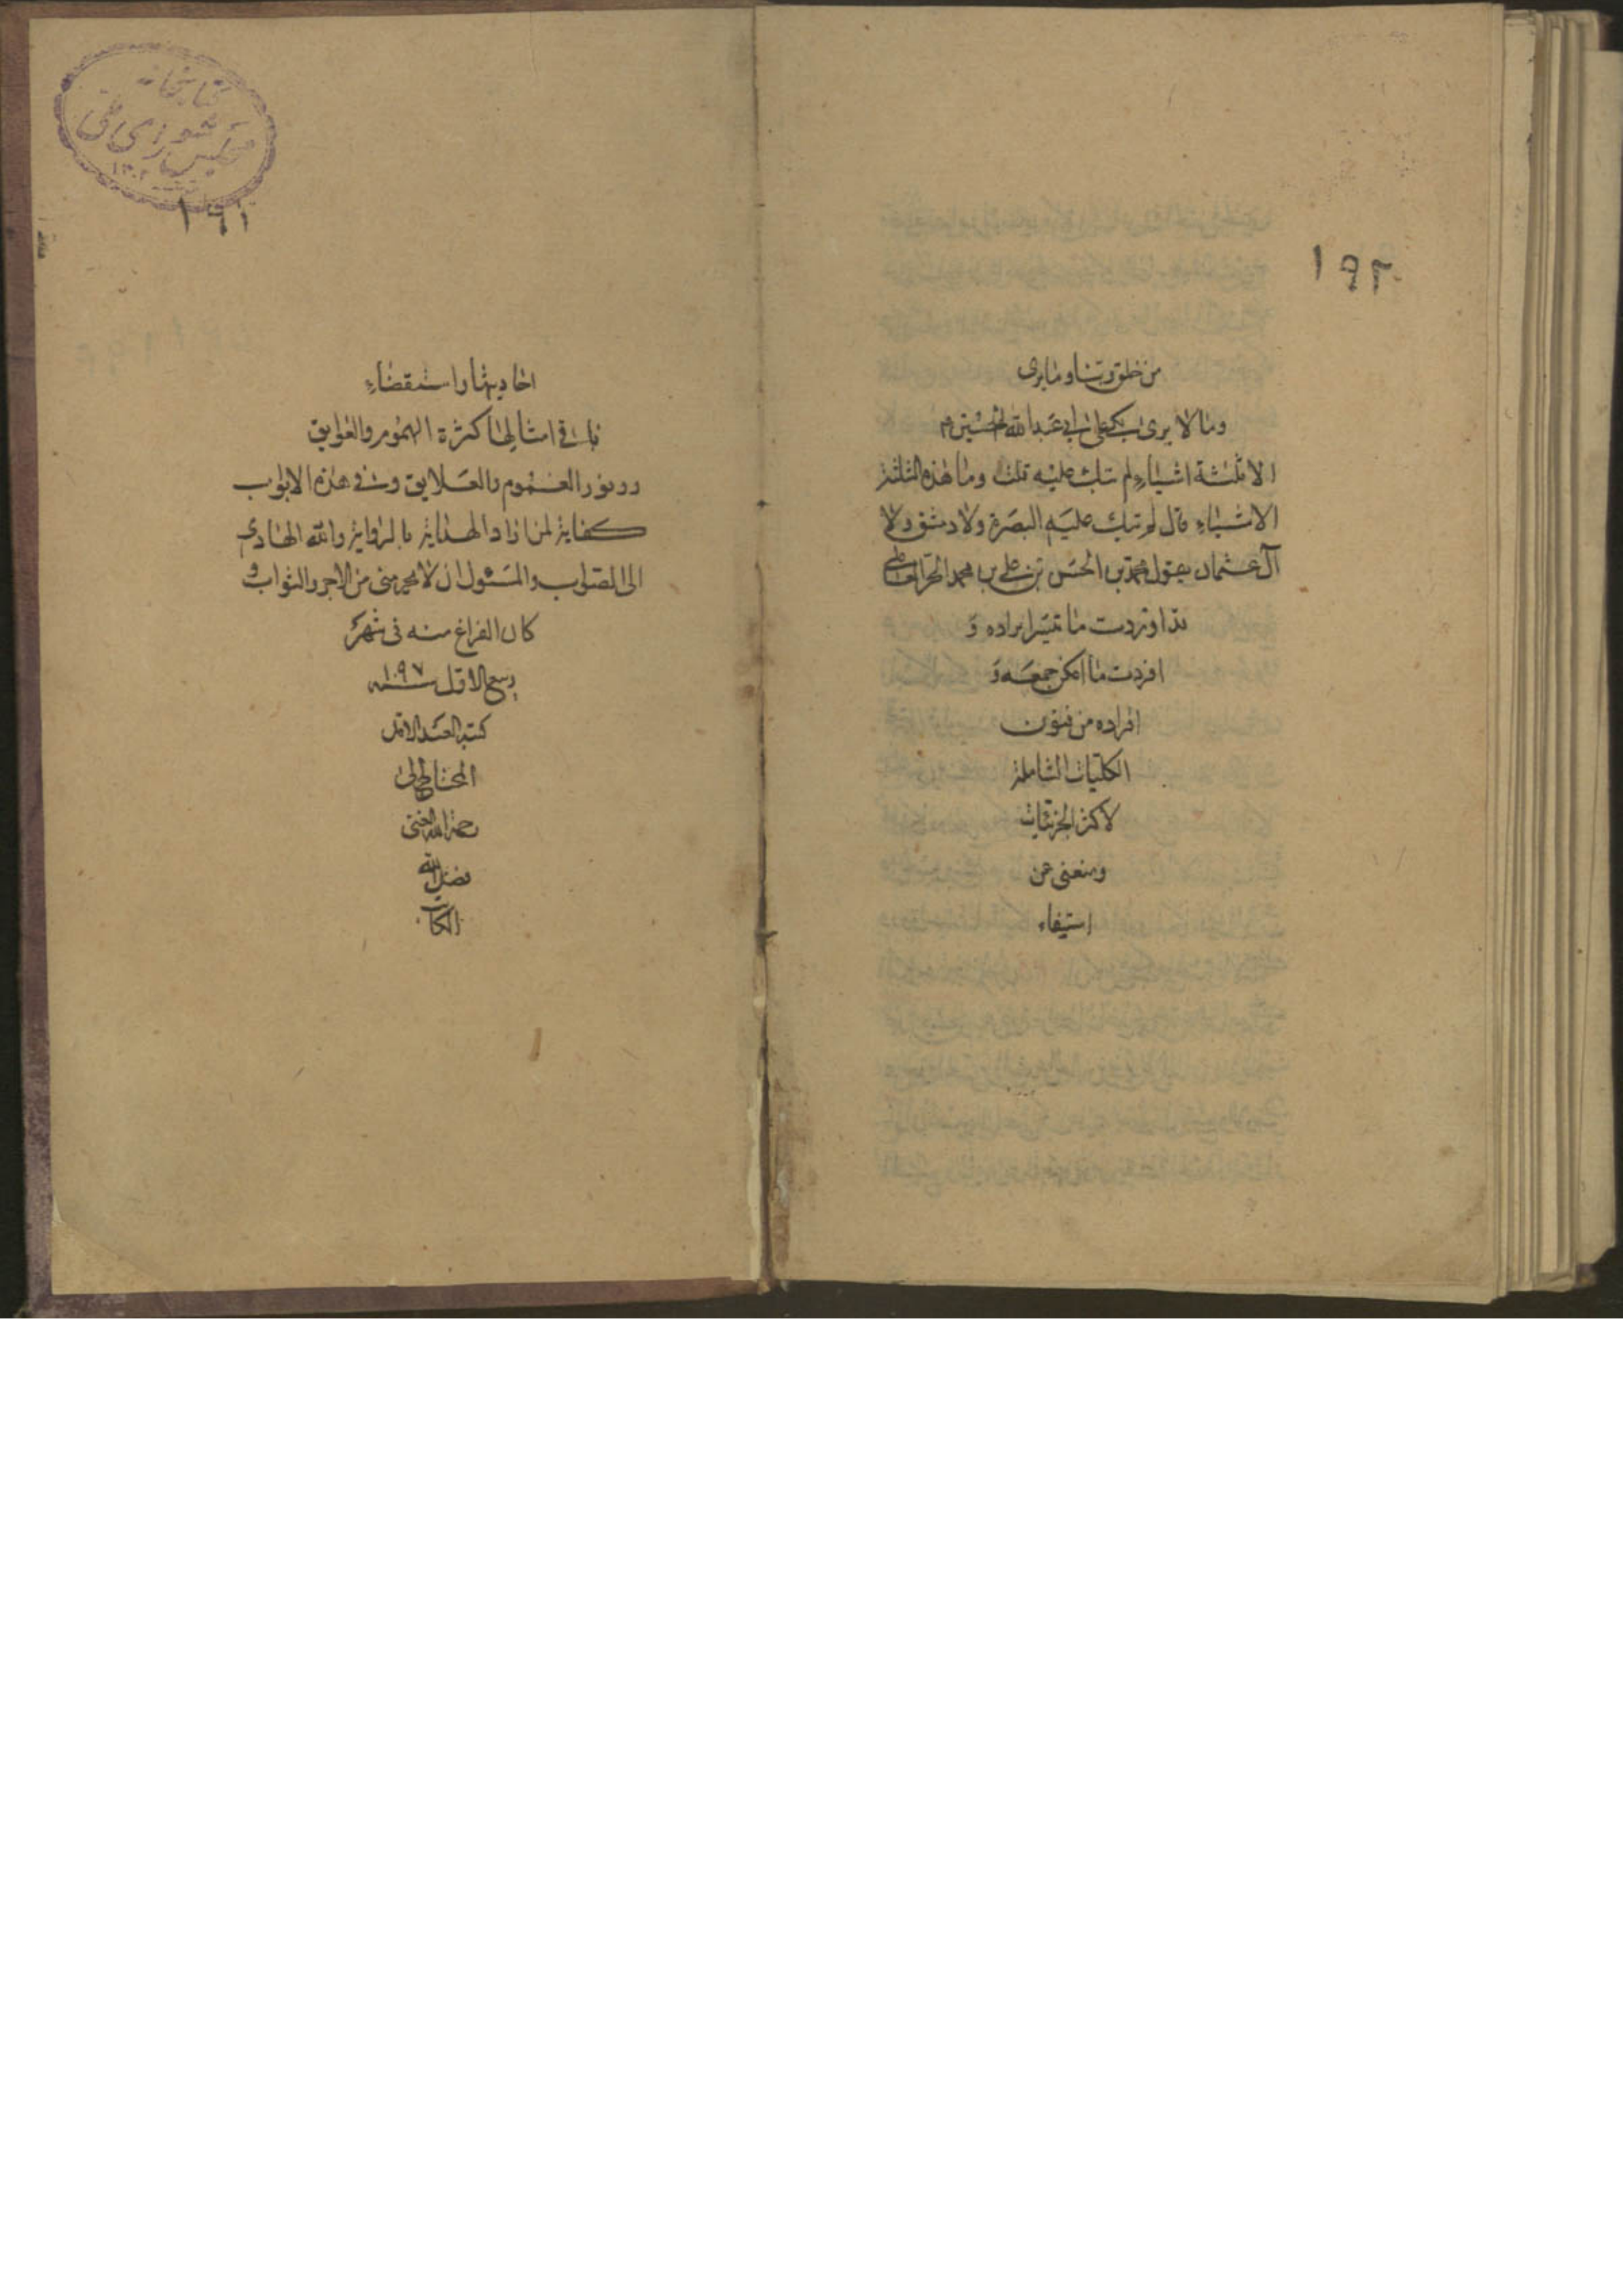 ١٩٢
من خلق ربنا وما يرى
وما لا يرى بكى على ابي عبد الله الحسين ع
الا ثلثة اشياء لم تبك عليه قلت وما هذه الثلثة
الاشياء قال لم تبك عليه البصرة ولا دمشق ولا
آل عثمان يقول محمد بن الحسن بن علي بن محمد الحر العاملي
قد اوردت ما تيسر ايراده و
افردت ما امكن جمعه و
افراده من فنون
الكليات الشاملة
لاكثر الجزئيات
ومنعنى عن
استيفاء
كتابخانه
مجلس شورای ملی
١٣٠٢
١٩١
احاديثها واستقضاء
باقي امثالها كثرة الهموم والعوايق
ووفور الغموم والعلايق وفي هذه الابواب
كفاية لمن اراد الهداية بالرواية والله الهادى
الى الصواب والمسئول ان لا يحرمنى من الاجر والثواب و
كان الفراغ منه فى شهر
ربيع الاول سنه ١٠٩٧
كتبه العبد الاقل
المحتاج الى
رحمة الله الغنى
فضل الله
الكاتب